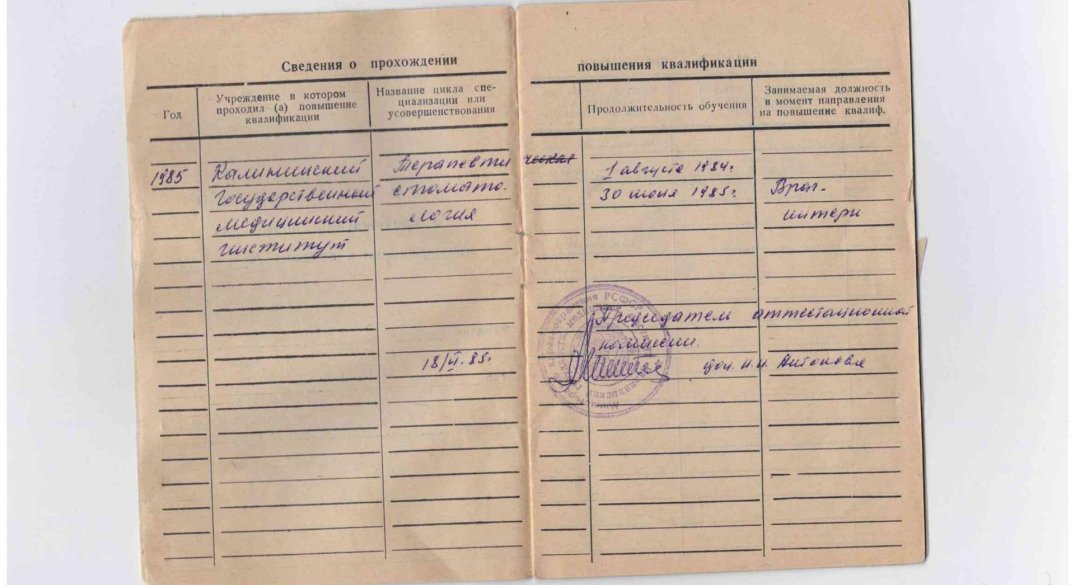 Сведения о прохождении
повышения квалификации
Год
Учреждение в котором
проходил (а) повышение
квалификации
Название цикла спе-
циализации или
усовершенствования
Продолжительность обучения
Занимаемая должность
в момент направления
на повышение квалиф.
1985
Калининский
Государственный
медицинский
институт
Терапевти ческая
стомато-
логия
1 августа 1984г.
30 июня 1985г.
Врач-
интерн
18/VI.85г.
Председатель аттестационной
комиссии.
доц. Антонова
РСФСР